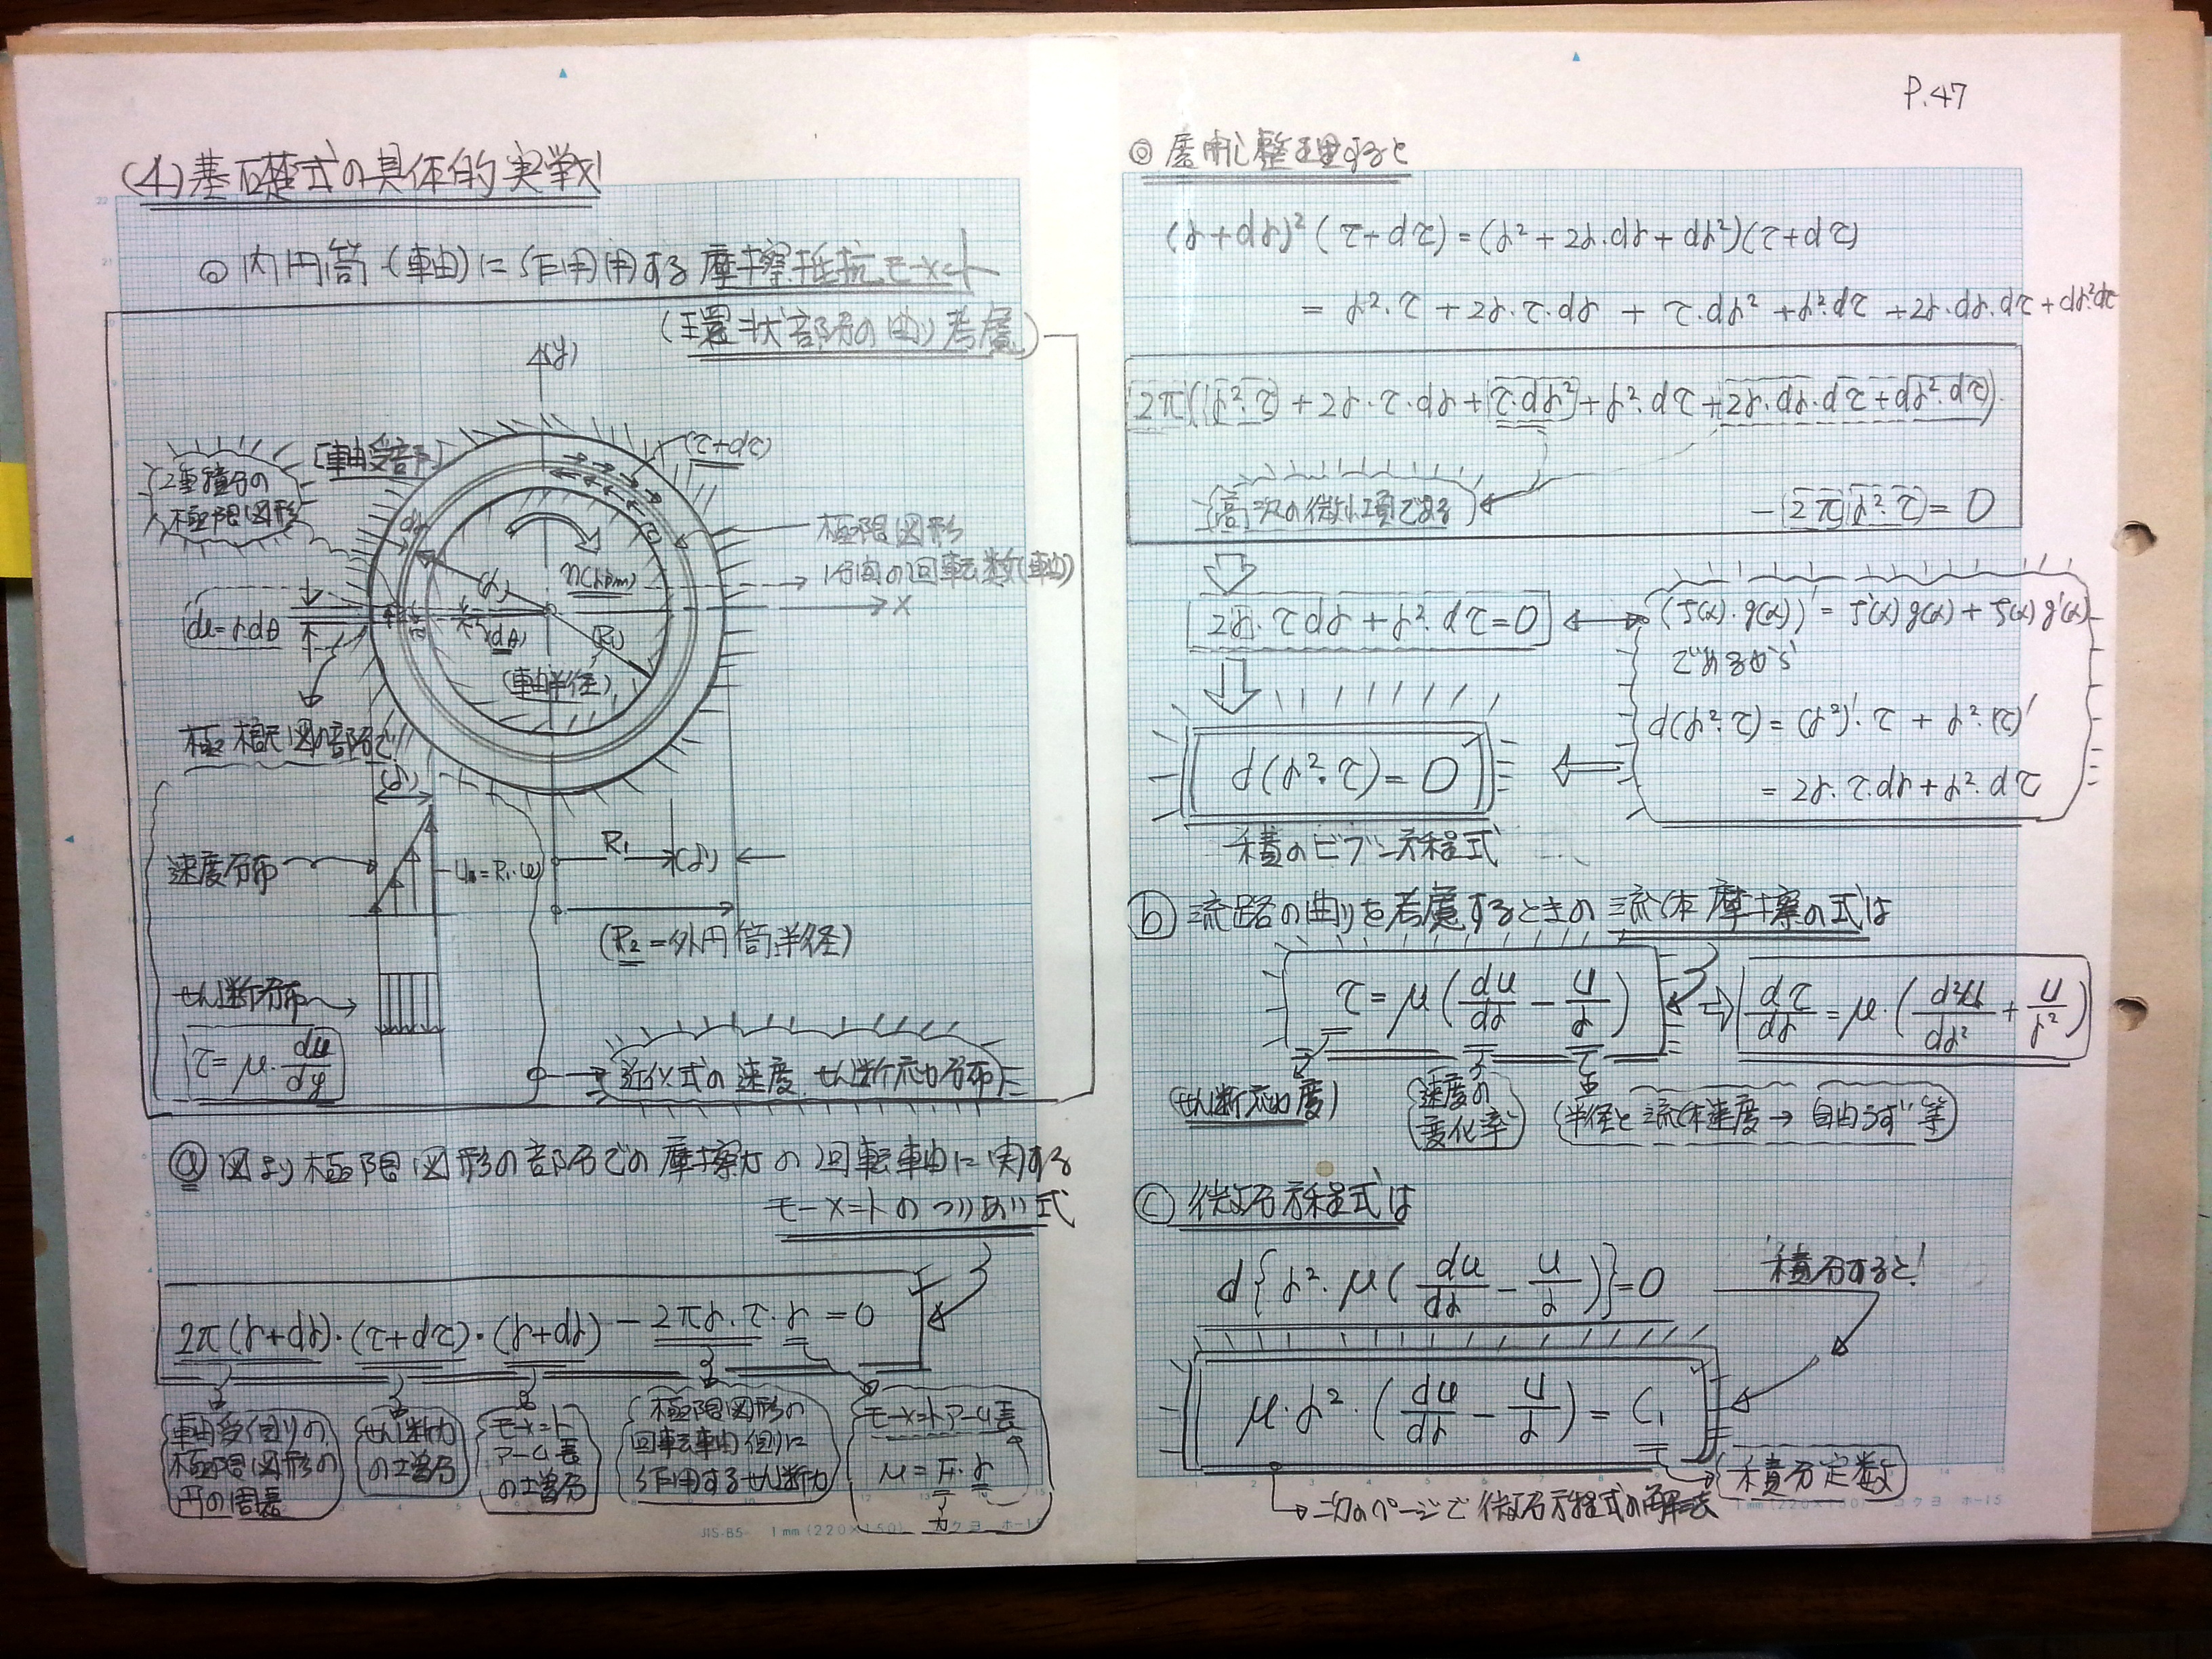 P.47
(4)基礎式の具体的実戦!
○内円筒(車軸)に作用する摩擦抵抗モーメント
(環状部分の曲り考慮)
(y)
2重積分の
極限図形
[軸受部]
(τ+dτ)
dr
(r)
n(rpm)
極限図形
1分間の回転数(軸)
x
du=r·dθ
(dθ)
(R₁)
(軸半径)
極限図の部分で!
(r)
速度分布
U₀=R₁·ω
R₁
(r)
(R₂=外円筒半径)
せん断分布
τ=μ·du/dy
近似式の速度、せん断応力分布
ⓐ図より極限図形の部分での摩擦力の回転軸に関する
モーメントのつりあい式
2π(r+dr)·(τ+dτ)·(r+dr)-2πr·τ·r=0
軸受側の
極限図形の
円の周長
せん断力
の増分
モーメント
アーム長
の増分
極限図形の
回転軸側に
作用するせん断力
モーメントアーム長
M=F·r
力
JIS-B5 1mm(220×150) コクヨ ホ-15
◎展開し整理すると
(r+dr)²(τ+dτ)=(r²+2r·dr+dr²)(τ+dτ)
=r²·τ+2r·τ·dr+τ·dr²+r²·dτ+2r·dr·dτ+dr²·dτ
2π(r²·τ+2r·τ·dr+τ·dr²+r²·dτ+2r·dr·dτ+dr²·dτ)
高次の微小項である
-2π r²·τ=0
2r·τdr+r²·dτ=0
(f(x)·g(x))'=f'(x)g(x)+f(x)g'(x)
であるから
d(r²·τ)=(r²)'·τ+r²·(τ)'
=2r·τ·dr+r²·dτ
d(r²·τ)=0
積のビブン方程式
ⓑ流路の曲りを考慮するときの流体摩擦の式は
τ=μ(du/dr-u/r)
dτ/dr=μ·(d²u/dr²+u/r²)
(せん断応力度)
速度の
変化率
(半径と流体速度→自由うず等)
ⓒ微分方程式は
d{r²·μ(du/dr-u/r)}=0
積分すると!
μ·r²·(du/dr-u/r)=C₁
積分定数
次のページで微分方程式の解法
1mm(220×150) コクヨ ホ-15